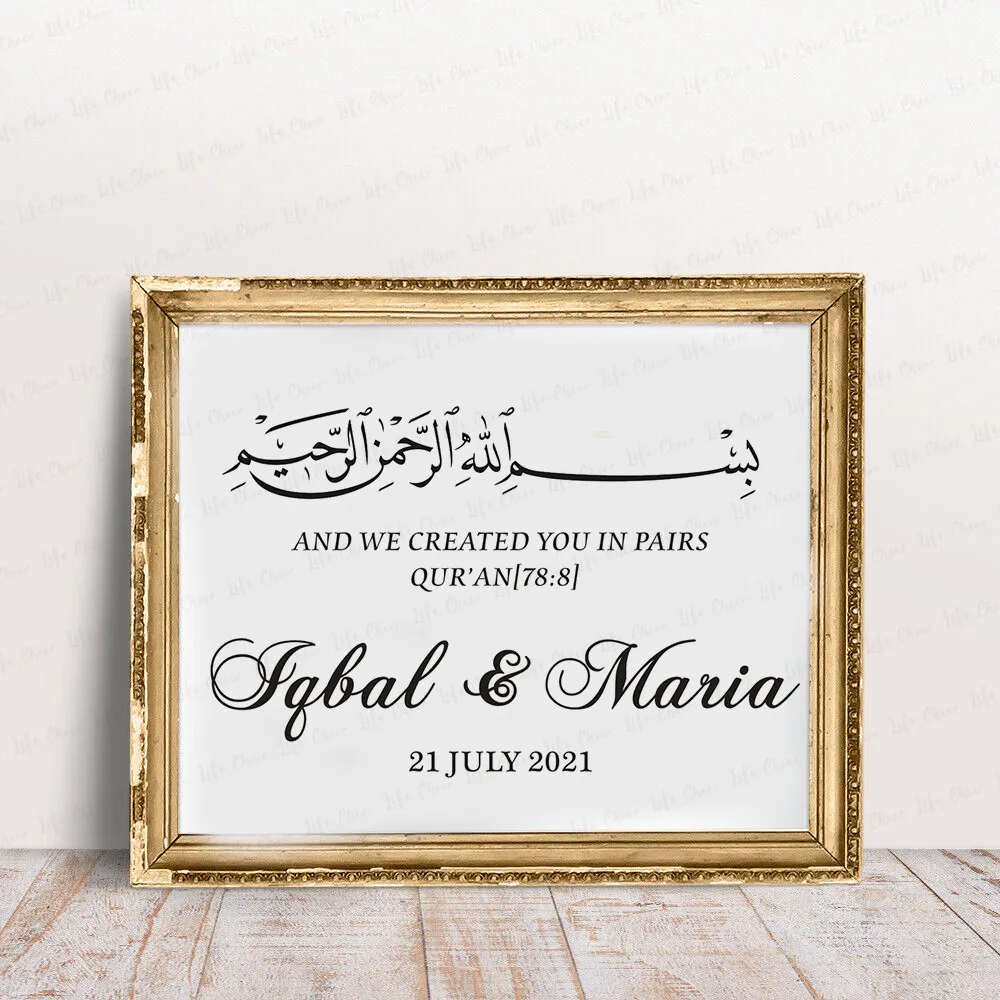 بِسْمِ ٱللَّهِ ٱلرَّحْمَٰنِ ٱلرَّحِيمِ
AND WE CREATED YOU IN PAIRS
QUR’AN[78:8]
Iqbal & Maria
21 JULY 2021
Life Cheer